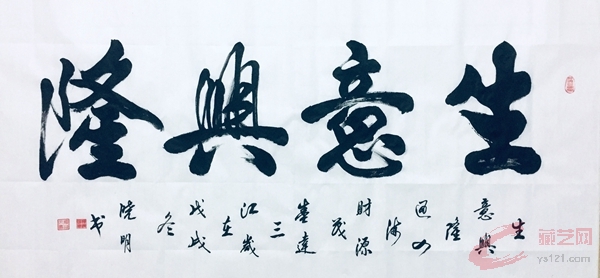 生意興隆
生
意興
隆
通四
海
財源
茂
盛達
三
江歲
在
戊戌
冬
明
书
藏艺网
ys121.com